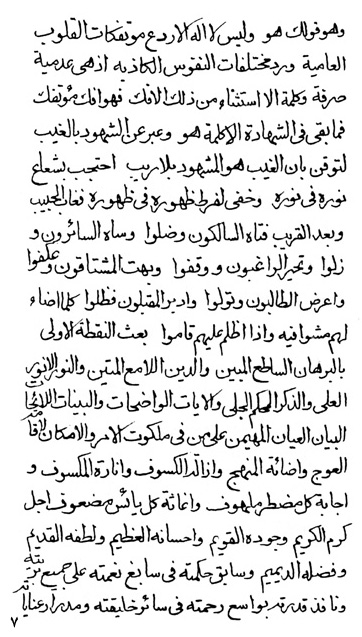 وهو قولك هو وليس لا اله الا ردع موتفكات القلوب
العامية ورد مختلفات النفوس الكاذبه اذ هى عدمية
صرفة وكلمة الا استثناء من ذلك الافك فهو افك مؤتفك
فما بقى فى الشهادة الا كلمة هو وعبر عن الشهود بالغيب
لتوقن بان الغيب هو المشهود بلا ريب احتجب بشعاع
نوره فى نوره وخفى لفرط ظهوره فى ظهوره فغاب الحبيب
وبعد القريب فتاه السالكون وضلوا وساه السائرون و
زلوا وتحير الراغبون ووقفوا وبهت المشتاقون وعكفوا
واعرض الطالبون وتولوا وادبر المقبلون فظلوا كلما اضاء
لهم مشوا فيه واذا اظلم عليهم قاموا بعث النقطة الاولى
بالبرهان الساطع المبين والدين اللامع المتين والنور الانور
العلى والذكر الحكيم الجلى والايات الواضحات والبينات اللائحات
البيان العيان المهيمن على من فى ملكوت الامر والامكان لاقامة
العوج واضائة المنهج وازالة الكسوف وانارة المكسوف و
اجابة كل مضطر ملهوف واغاثة كل بائس مضعوف اجل
كرم الكريم وجوده القويم واحسانه العظيم ولطفه القديم
وفضله الديميم وسابق حكمته فى سابغ نعمته على جميع بريته
ونافذ قدرته بواسع رحمته فى سائر خليقته ومدرار عنايا
٧